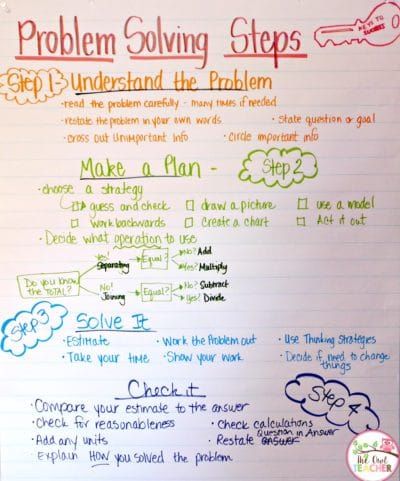 Problem Solving Steps
KEYS TO SUCCESS
Step 1 Understand the Problem
• read the problem carefully - many times if needed
• restate the problem in your own words • State question or goal
• cross out unimportant info • Circle important info
Make a Plan - Step 2
• choose a strategy
guess and check draw a picture use a model
work backwards Create a chart Act it out
• Decide what operation to use
Do you know the TOTAL?
Yes! Separating Equal? No? Add
Yes? Multiply
No! Joining Equal? No? Subtract
Yes! Divide
Step 3 Solve It
• Estimate • Work the Problem out • Use Thinking Strategies
• Take your time • Show your work • Decide if need to change things
Check it Step 4
• Compare your estimate to the answer
• Check for reasonableness • Check calculations
• Add any units • Restate Question in Answer answer
• Explain How you solved the problem
The Owl TEACHER